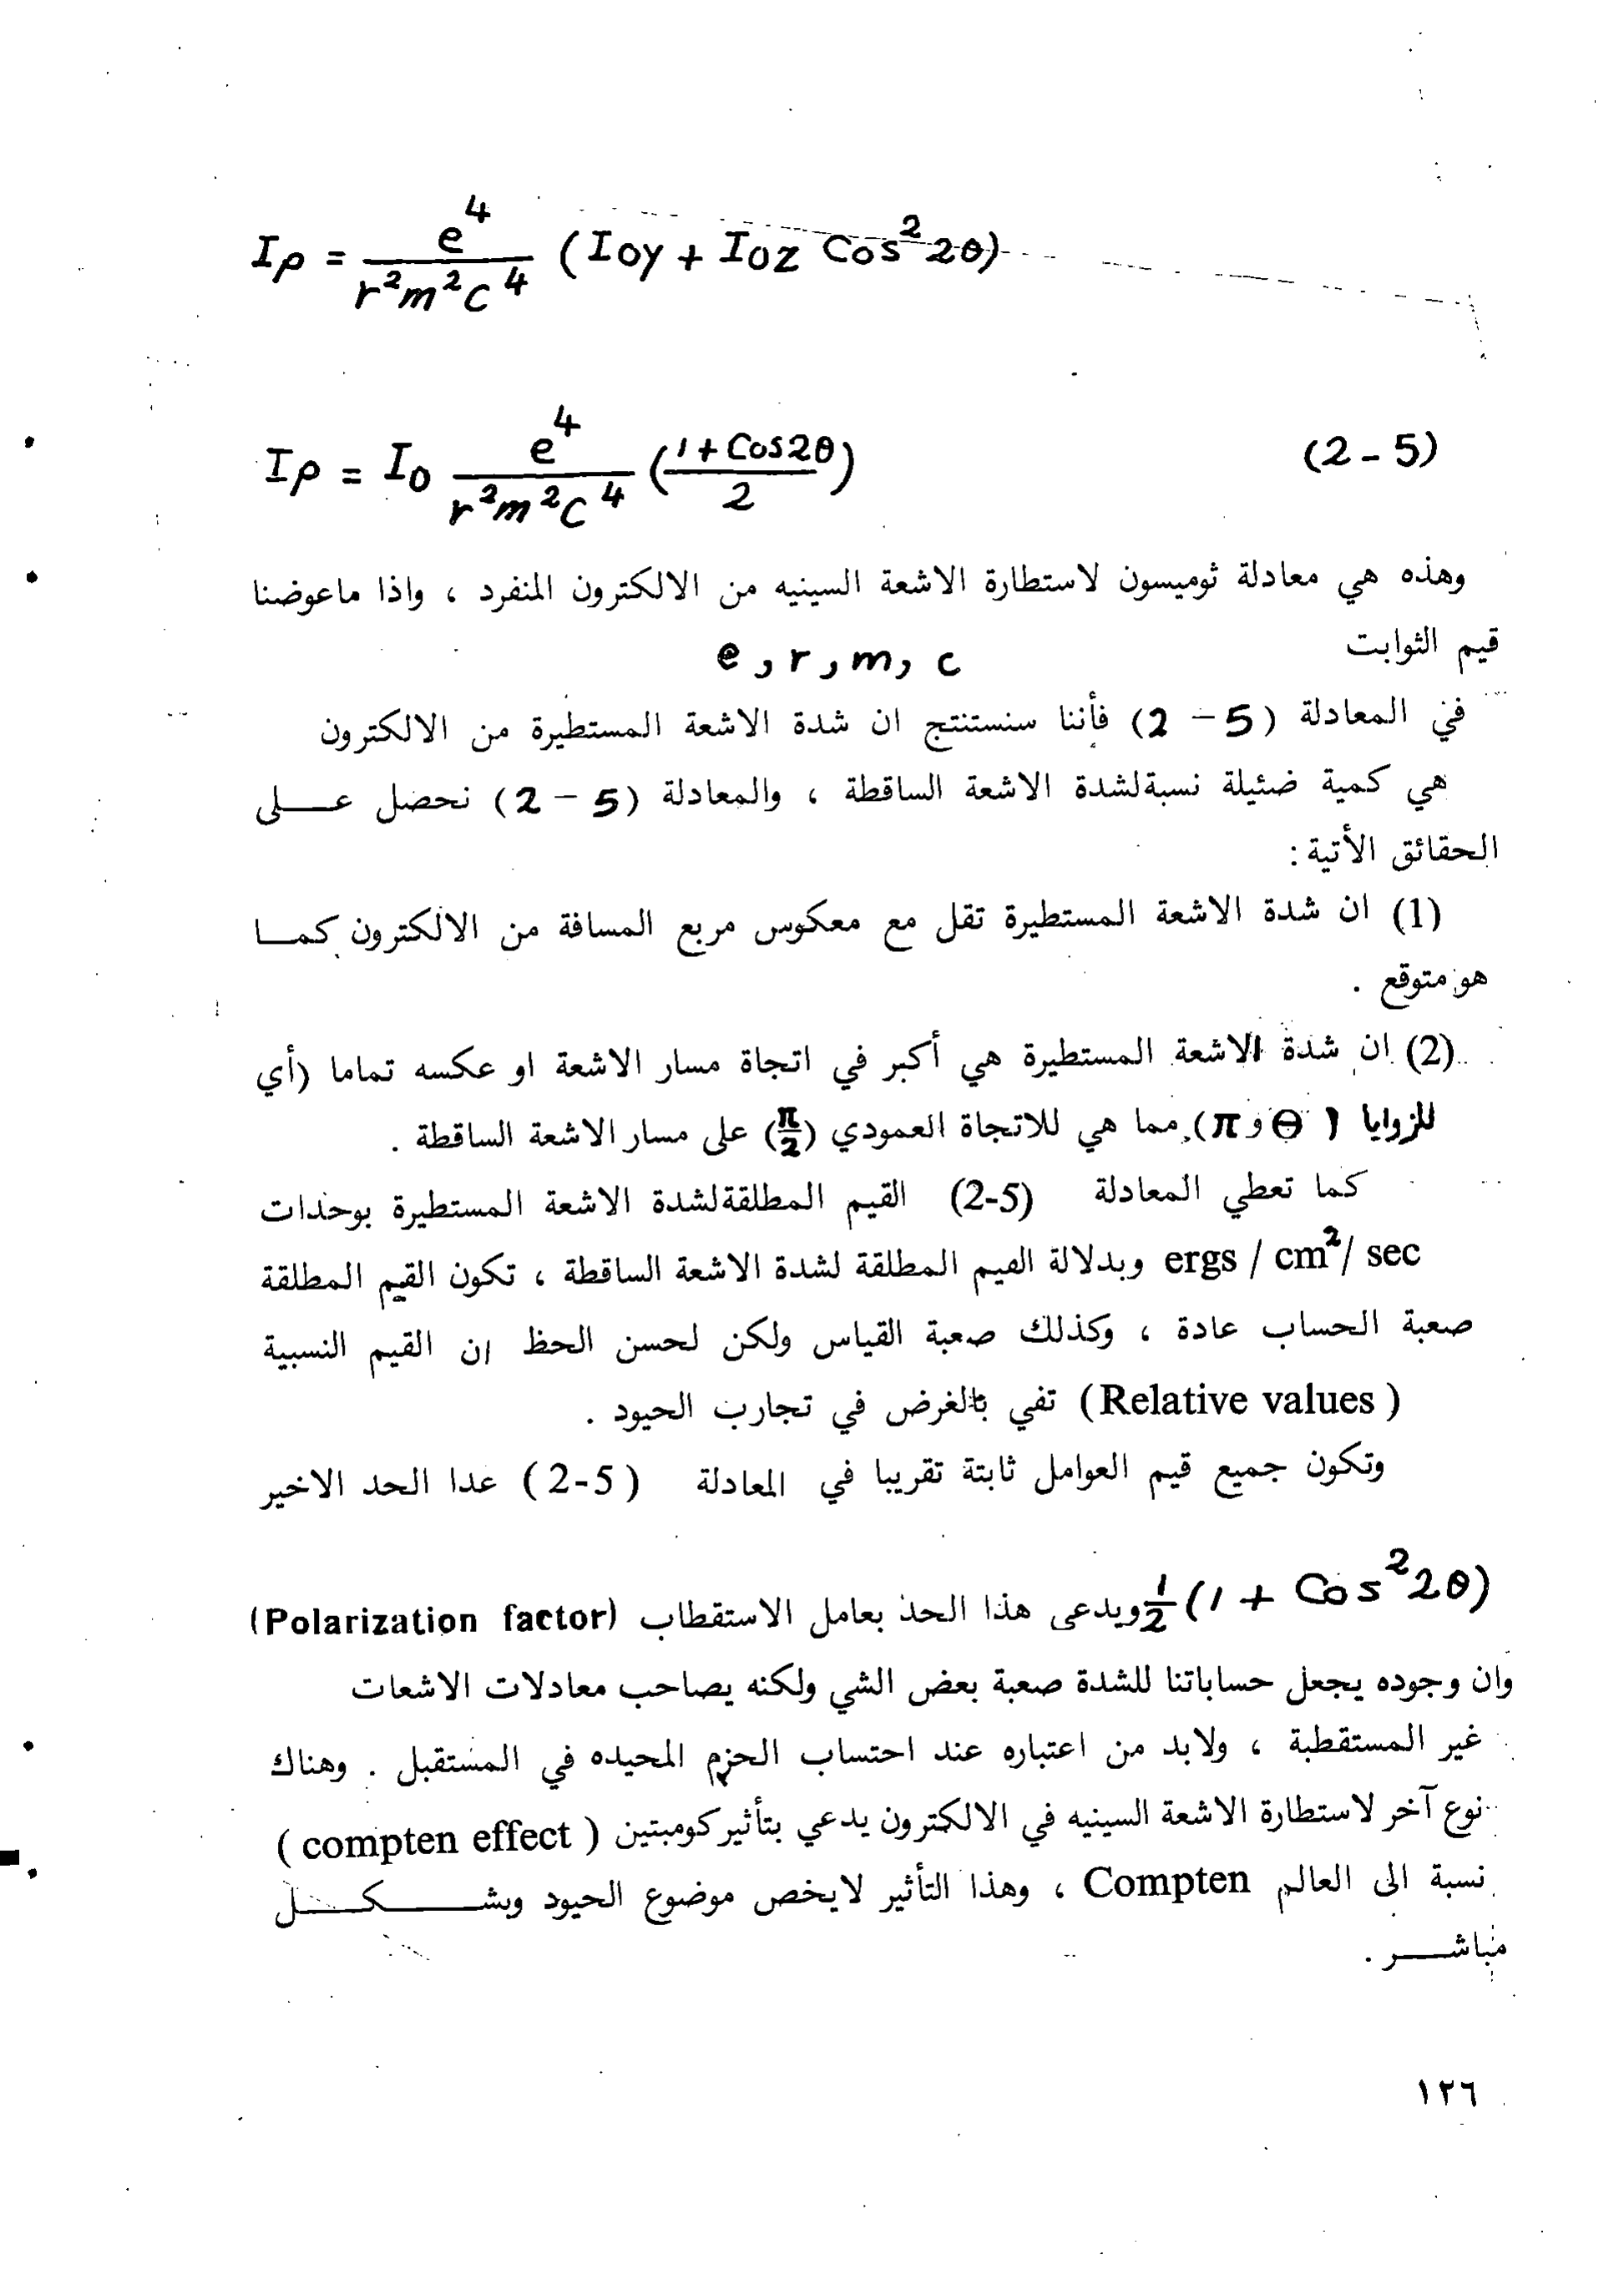 Iρ = e⁴ / r²m²c⁴ (Ioy + Ioz Cos² 2θ)
Iρ = Io e⁴ / r²m²c⁴ (1 + Cos2θ / 2) (2 - 5)
وهذه هي معادلة ثوميسون لاستطارة الاشعة السينيه من الالكترون المنفرد ، واذا ماعوضنا
قيم الثوابت
e , r , m , c
في المعادلة (2 – 5) فأننا سنستنتج ان شدة الاشعة المستطيرة من الالكترون
هي كمية ضئيلة نسبةلشدة الاشعة الساقطة ، والمعادلة (2 – 5) نحصل عـــلى
الحقائق الأتية :
(1) ان شدة الاشعة المستطيرة تقل مع معكوس مربع المسافة من الالكترون كمـــا
هو متوقع .
(2) ان شدة الاشعة المستطيرة هي أكبر في اتجاة مسار الاشعة او عكسه تماما (أي
للزوايا ( Θ و π) مما هي للاتجاة العمودي (π/2) على مسار الاشعة الساقطة .
كما تعطي المعادلة (2-5) القيم المطلقةلشدة الاشعة المستطيرة بوحدات
ergs / cm²/ sec وبدلالة القيم المطلقة لشدة الاشعة الساقطة ، تكون القيم المطلقة
صعبة الحساب عادة ، وكذلك صعبة القياس ولكن لحسن الحظ ان القيم النسبية
(Relative values) تفي بالغرض في تجارب الحيود .
وتكون جميع قيم العوامل ثابتة تقريبا في المعادلة (2-5) عدا الحد الاخير
½ (1 + Cos² 2θ) ويدعى هذا الحد بعامل الاستقطاب (Polarization factor)
وان وجوده يجعل حساباتنا للشدة صعبة بعض الشي ولكنه يصاحب معادلات الاشعات
غير المستقطبة ، ولابد من اعتباره عند احتساب الحزم المحيده في المستقبل . وهناك
نوع آخر لاستطارة الاشعة السينيه في الالكترون يدعي بتأثير كومبتين (compten effect)
نسبة الى العالم Compten ، وهذا التأثير لايخص موضوع الحيود وبشـــــكـــــل
مباشـــر .
١٢٦